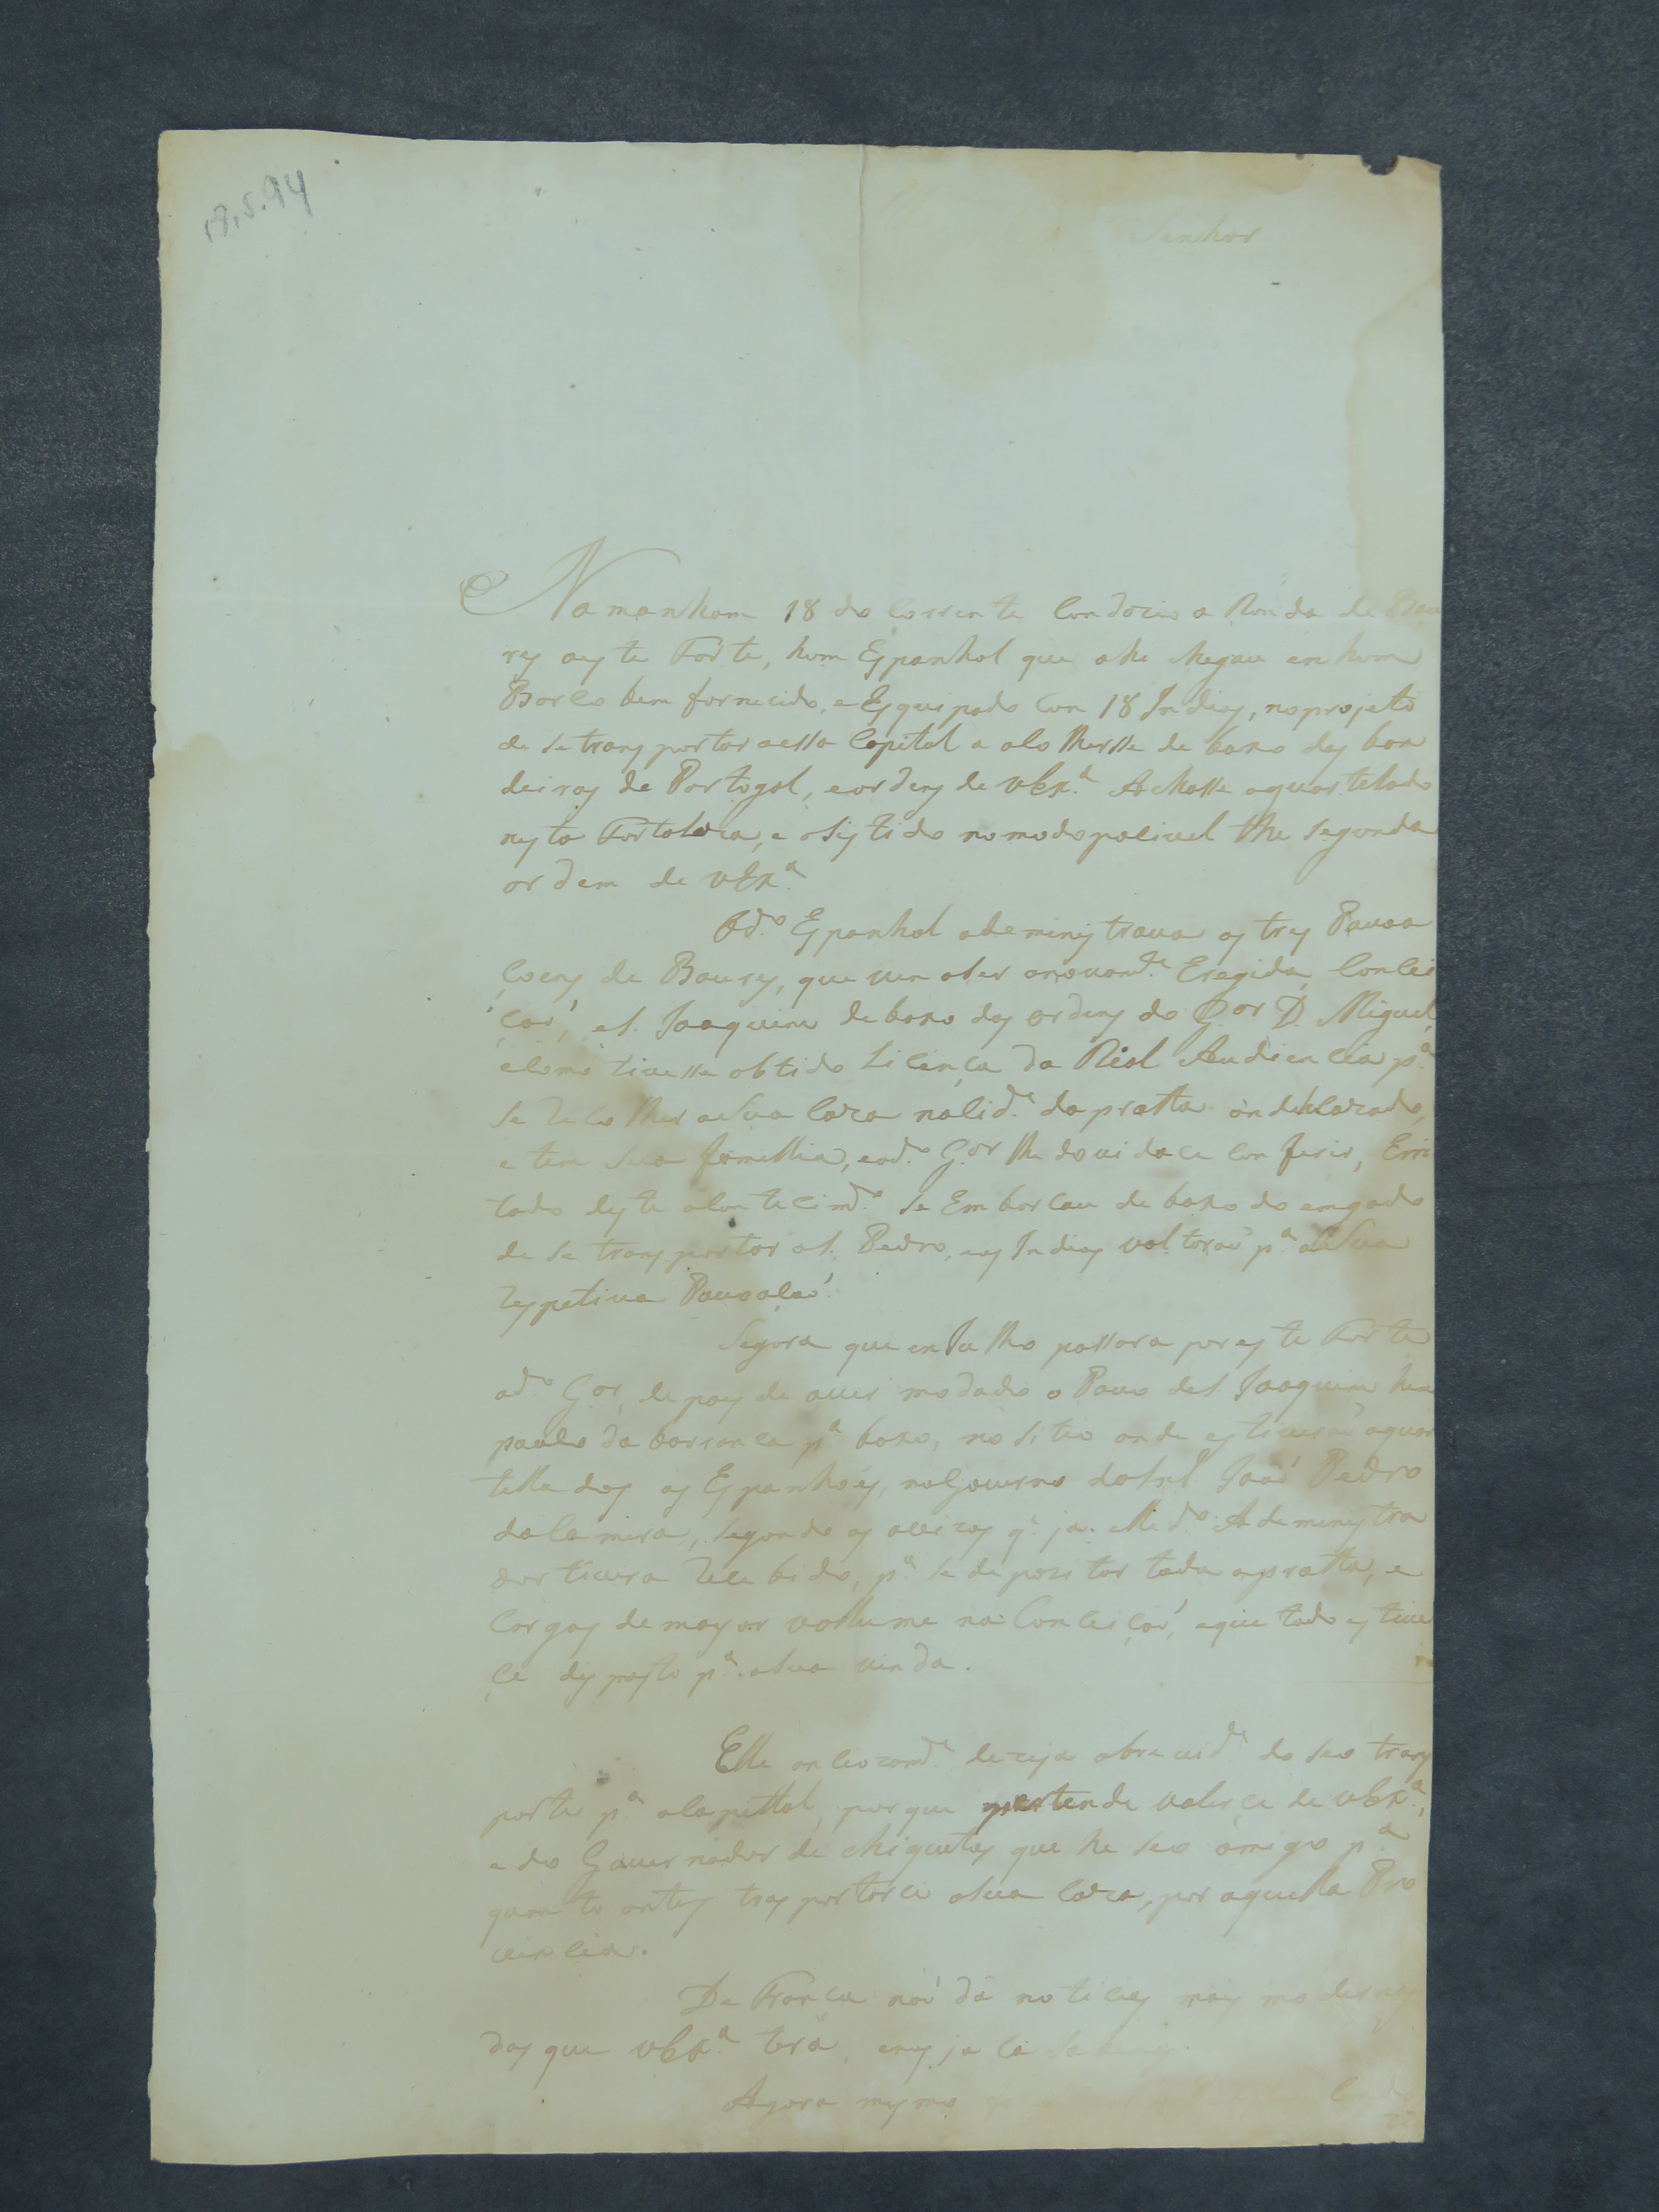 18.5.94
Senhor
Na manham 18 do corrente condocio a Ronda de Bau
res aeste Forte, hum Espanhol que ahi chegau en hum
Barco bem fornecido, e Esquipado com 18 Indios, no projeto
de se transportar aessa Capital a alo lhersse de baxo das ban
deiras de Portogal, e ordens de VExª. Achasse aquartelado
nesta Fortaleza, e asistido no modo posivel the segunda
ordem de VExª.
Od.º Espanhol ademenistrava as tres Pavoa
çoens de Baures, que vem aser Eregida, Concei
çaó, e S. Joaquim debaxo das ordens do G.or D. Miguel,
e como tivesse obtido Licença da Rial Audiencia pª.
se recolher a Sua Caza na Cid.e da pratta
e tem Sua famellia, e o d.º G.or lhe dovidace conferir, Erri
tado deste acontecim.to se Embarcau de baxo do
de se transportar a S. Pedro, e os Indios voltoraó pª. a Sua
respetiva Pavoaçaó.
Segora que en Julho passara por este Forte
o d.º G.or, depoes de aver modado o Pavo de S. Joaquim, hum
pauco da barranca pª. baxo, no sitio onde estiveraó aquar
tellados os Espanhoes, no Governo do Snr. Joaó Pedro
da Camera, segondo os avizos q. ja elle d.º Ademenistra
dor tivera recebido, pª. se depozitar toda a pratta, e
cargas de mayor vollume na Conceiçaó, e que todo estive
çe disposto pª. a Sua vinda.
Elle deceja abrevid.e do seo trans
porte pª. a Capettal, porque pertende valerce de VExª.,
e do Governador de Chiquitos que he seo amigo pª.
quanto antes trasportarce a Sua Caza, por aquella Pro
vincia.
De França naó dá noticias mais modernas
das que VExª. terá,
Agora mesmo